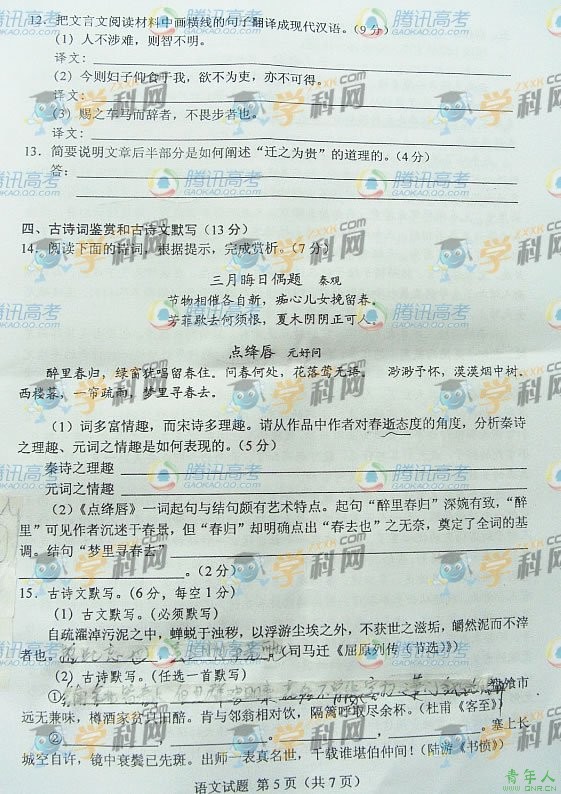 12. 把文言文阅读材料中画横线的句子翻译成现代汉语。(9分)
(1) 人不涉难，则智不明。
译文：
(2) 今则妇子仰食于我，欲不为吏，亦不可得。
译文：
(3) 赐之车马而辞者，不畏步者也。
译文：
13. 简要说明文章后半部分是如何阐述“迁之为贵”的道理的。(4分)
答：
四、古诗词鉴赏和古诗文默写(13分)
14. 阅读下面的诗词，根据提示，完成赏析。(7分)
三月晦日偶题 秦观
节物相催各自新，痴心儿女挽留春。
芳菲歇去何须恨，夏木阴阴正可人。
点绛唇 元好问
醉里春归，绿窗犹唱留春住。问春何处，花落莺无语。 渺渺予怀，漠漠烟中树。
西楼暮，一帘疏雨，梦里寻春去。
(1) 词多富情趣，而宋诗多理趣。请从作品中作者对春逝态度的角度，分析秦诗
之理趣、元词之情趣是如何表现的。(5分)
秦诗之理趣
元词之情趣
(2)《点绛唇》一词起句与结句颇有艺术特点。起句“醉里春归”深婉有致，“醉
里”可见作者沉迷于春景，但“春归”却明确点出“春去也”之无奈，奠定了全词的基
调。结句“梦里寻春去”
。(2分)
15. 古诗文默写。(6分，每空1分)
(1) 古文默写。(必须默写)
自疏濯淖污泥之中，蝉蜕于浊秽，以浮游尘埃之外，不获世之滋垢，皭然泥而不滓
者也。 (司马迁《屈原列传(节选)》)
(2) 古诗默写。(任选一首默写)
① 飧市
远无兼味，樽酒家贫只旧醅。肯与邻翁相对饮，隔篱呼取尽余杯。(杜甫《客至》)
② ， 。塞上长
城空自许，镜中衰鬓已先斑。出师一表真名世，千载谁堪伯仲间！(陆游《书愤》)
语文试题 第5页（共7页）
腾讯高考
GAOKAO.QQ.COM
学科网
ZXXK.COM
青年人
QNR.CN